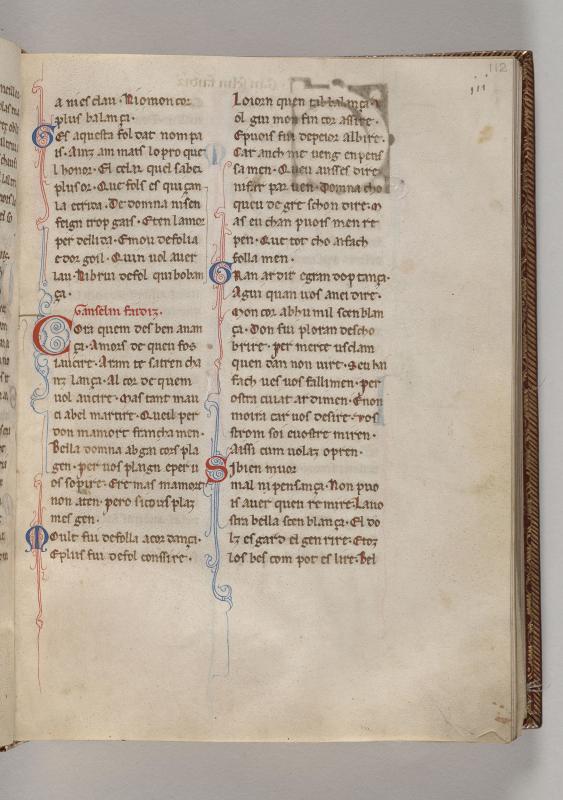 112
iii
a mi es clau. Ni o mon cor
plus balança.
Ges aquesta fol dat nom pa
is. Ainz am mais lo pro que
l honor. El celar quel saber
plus or. Que fols es qui çan
la crida. De domna nisen
feign trop gais. Et en l amor
per dellida. E mou de folia
e dor goil. Quin vol auer
lau. Ni brui de fol qui boban
ça.
Ganselin faidiz.
Cora quem des ben anan
ça. Amors de quen fos
iauzire. Aram te s aten cha
nz lança. Al cor de quem
uol aucire. Mas tant mau
ci abel martire. Queil per
don mamort francha men.
Bella domna ab gai cors pla
gen. per vos plaign e per u
os sopire. Ere mas mamort
non aten. pero si couis plaz
mes gen.
Moult fui de folla acordança.
E plus fui de fol conssire.
Lo iorn quen tal balança.
ol gui mon fin cor assire.
E puois fui de peior albire.
Car anch me ueng en pens
samen. Queu ausses dire
ni far par uen. Domna cho
queu de gre s chon dire. M
as eu chan puois men re
pen. Que tot cho ai fach
folla men.
Gran ardir e gran dop tança.
Agui quan vos anei dire.
Mon cor ab humil sen blan
ça. Don sui ploran descho
brire. per merce us clam
quen dan non uire. S eu hai
fach ues uos falli men. per
ostra cuiat ardimen. E non
moira car uos desire. vos
strom soi e uostre miren.
Aissi cum uolaz o pren.
Si bien muor
mal ni pensança. Non puo
is auer quen remire. La uo
stra bella sen blança. El do
lz esgard el gen rire. E toz
los bes com pot es lire. Bel